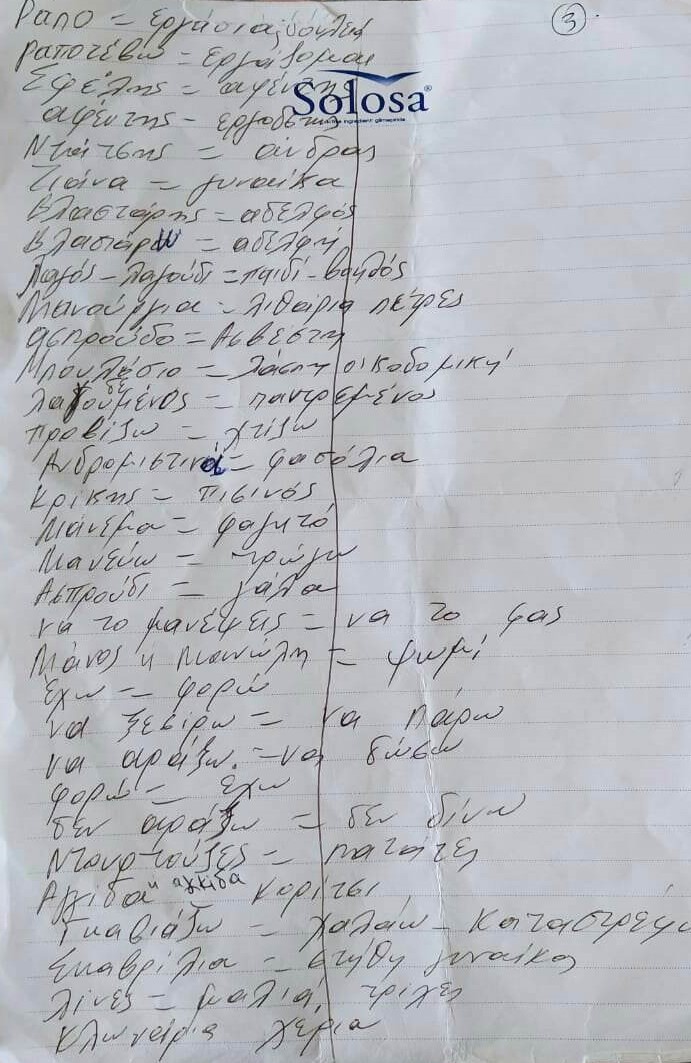 3
Ραπο = εργασία, δουλειά
ραποτέβω = εργάζομαι
Σφέλης = αφέντης
Solosa®
αφέντης - εργοδότης
Ντάτσης = άνδρας
Τσιάνα = γυναίκα
Βλαστάρης = αδελφός
Βλαστάρω = αδελφή
Λαγός - λαγούδι = παιδί -
Μανούργια - λιθάρια πέτρες
ασπρούδο = Ασβέστη
Μπουλάσιο = λάσπη οικοδομική
= παντρεμένος
προβίζω = χτίζω
Ανδρομιστινά = φασόλια
Κρίκης = πισινός
Μάνεμα = φαγητό
Μανεύω = τρώγω
Ασπρούδι = γάλα
να το μανέψεις = να το φας
Μάνος ή Μανώλη = ψωμί
έχω = φορώ
να ξεσίρω = να πάρω
να αράξω. = να δώσω
φορώ = έχω
δεν αράξω = δεν δίνω
Ντουρτούζες = πατάτες
Αγγίδα ή αγκίδα κορίτσι
Γκαβιάζω = χαλάω - καταστρέφω
Σκαβρίλια = στήθη γυναίκας
λίνες = μαλιά, τρίχες
κλωνάρια χέρια